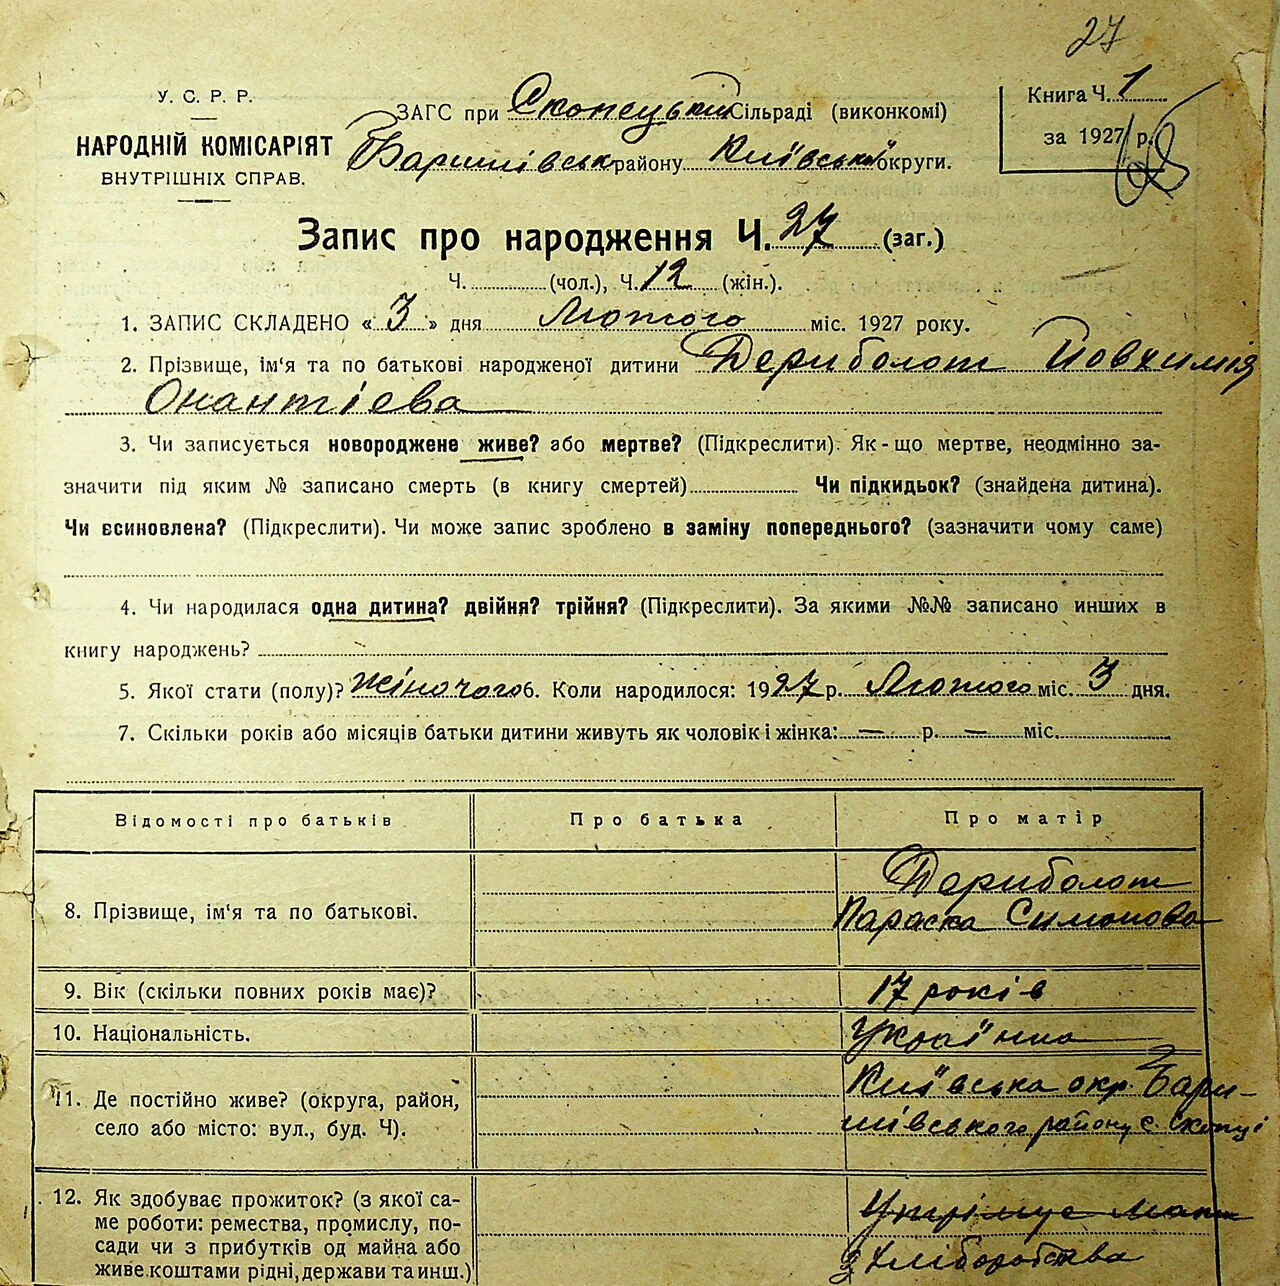 27
У. С. Р. Р.
НАРОДНІЙ КОМІСАРІЯТ
ВНУТРІШНІХ СПРАВ.
ЗАГС при Скопецькій Сільраді (виконкомі)
Баришівськ району Київської округи.
Книга Ч. 1
за 1927 р.
Запис про народження Ч. 27 (заг.)
Ч. (чол.), Ч. 12 (жін.).
1. ЗАПИС СКЛАДЕНО « 3 » дня Лютого міс. 1927 року.
2. Прізвище, ім‘я та по батькові народженої дитини Дериболот Йовхимія
Онантієва
3. Чи записується новороджене живе? або мертве? (Підкреслити). Як-що мертве, неодмінно за-
значити під яким № записано смерть (в книгу смертей) Чи підкидьок? (знайдена дитина).
Чи всиновлена? (Підкреслити). Чи може запис зроблено в заміну попереднього? (зазначити чому саме)
4. Чи народилася одна дитина? двійня? трійня? (Підкреслити). За якими №№ записано инших в
книгу народжень?
5. Якої стати (полу)? жіночого 6. Коли народилося: 1927 р. Лютого міс. 3 дня.
7. Скільки років або місяців батьки дитини живуть як чоловік і жінка: — р. — міс.
Відомості про батьків Про батька Про матір
8. Прізвище, ім‘я та по батькові. Дериболот
Параска Симонова
9. Вік (скільки повних років має)? 17 років
10. Національність. Українка
11. Де постійно живе? (округа, район, Київська окр. Бари-
село або місто: вул., буд. Ч). шівського району с. Скопці
12. Як здобуває прожиток? (з якої са-
ме роботи: ремества, промислу, по-
сади чи з прибутків од майна або з хліборобства
живе коштами рідні, держави та инш.)